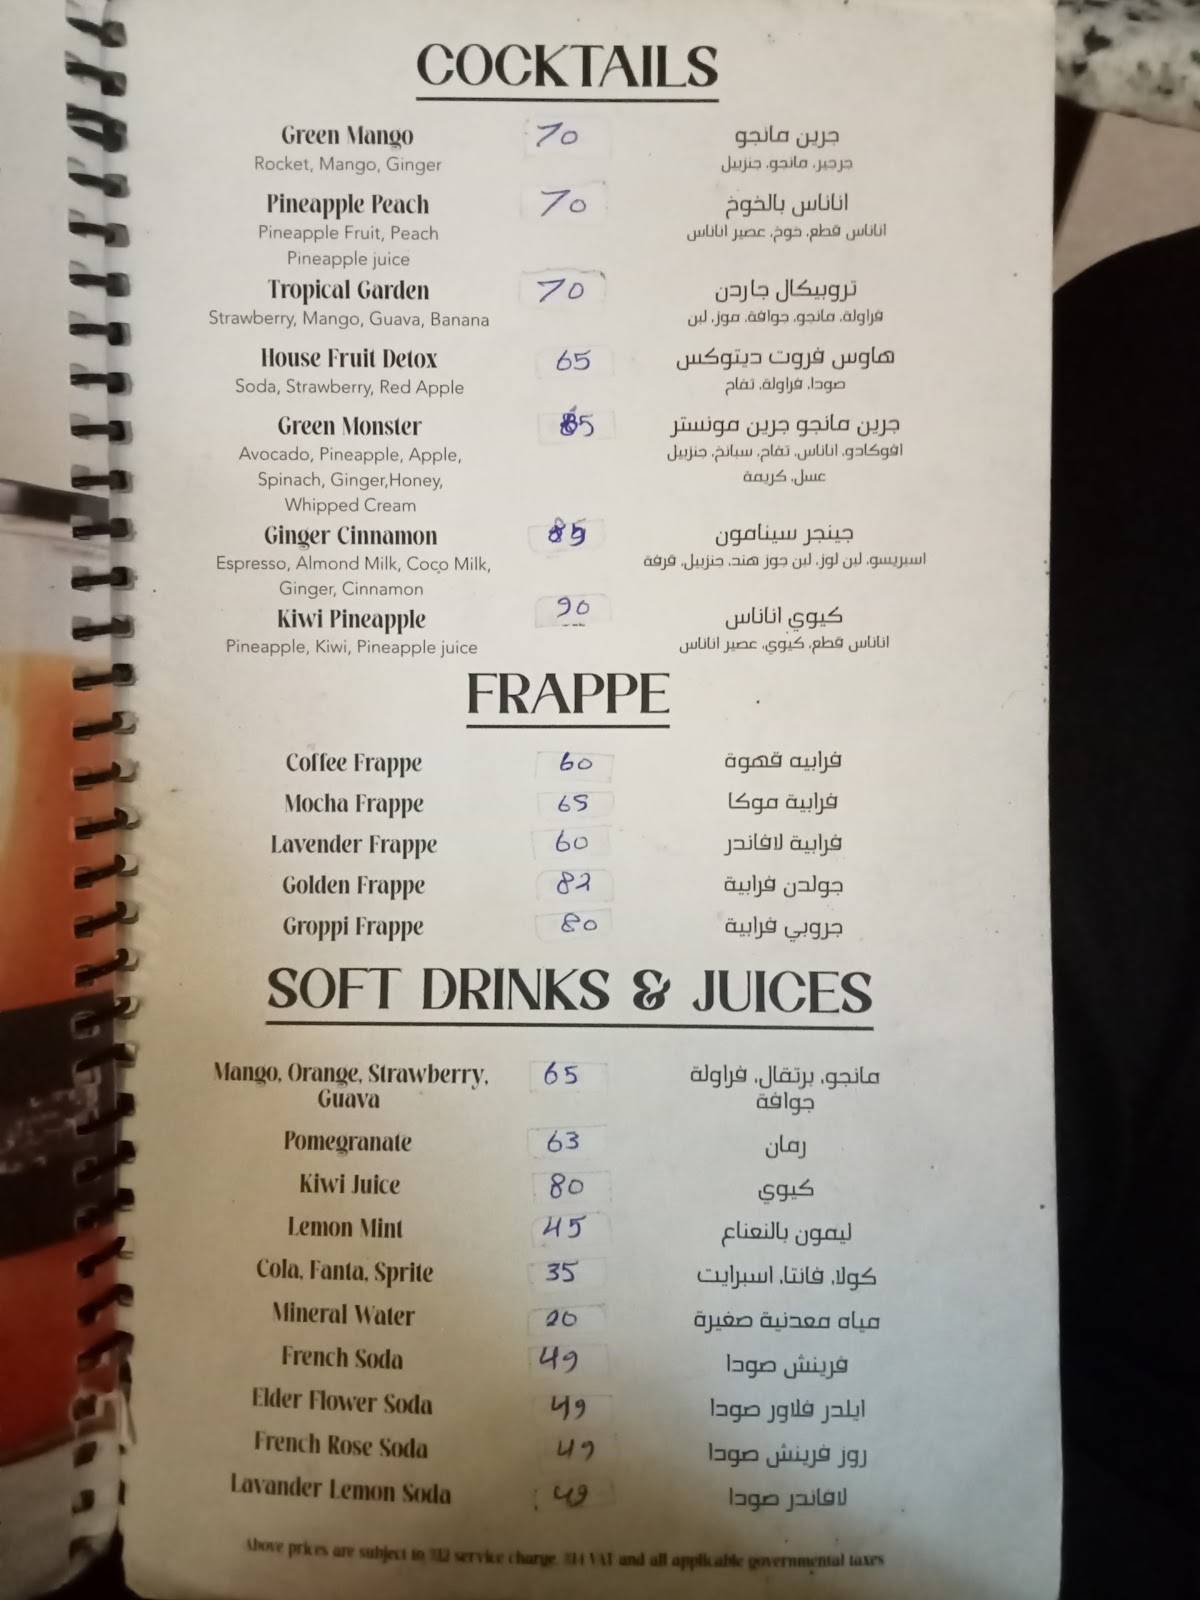 COCKTAILS
Green Mango 70 جرين مانجو
Rocket, Mango, Ginger جرجير، مانجو، جنزبيل
Pineapple Peach 70 اناناس بالخوخ
Pineapple Fruit, Peach اناناس قطع، خوخ، عصير اناناس
Pineapple juice
Tropical Garden 70 تروبيكال جاردن
Strawberry, Mango, Guava, Banana فراولة، مانجو، جوافة، موز، لبن
House Fruit Detox 65 هاوس فروت ديتوكس
Soda, Strawberry, Red Apple صودا، فراولة، تفاح
Green Monster 85 جرين مانجو جرين مونستر
Avocado, Pineapple, Apple, افوكادو، اناناس، تفاح، سبانخ، جنزبيل
Spinach, Ginger,Honey, عسل، كريمة
Whipped Cream
Ginger Cinnamon 85 جينجر سينامون
Espresso, Almond Milk, Coco Milk, اسبريسو، لبن لوز، لبن جوز هند، جنزبيل، قرفة
Ginger, Cinnamon
Kiwi Pineapple 90 كيوي اناناس
Pineapple, Kiwi, Pineapple juice اناناس قطع، كيوي، عصير اناناس
FRAPPE
Coffee Frappe 60 فرابيه قهوة
Mocha Frappe 65 فرابية موكا
Lavender Frappe 60 فرابية لافاندر
Golden Frappe 82 جولدن فرابية
Groppi Frappe 80 جروبي فرابية
SOFT DRINKS & JUICES
Mango, Orange, Strawberry, 65 مانجو، برتقال، فراولة
Guava جوافة
Pomegranate 63 رمان
Kiwi Juice 80 كيوي
Lemon Mint 45 ليمون بالنعناع
Cola, Fanta, Sprite 35 كولا، فانتا، اسبرايت
Mineral Water 20 مياه معدنية صغيرة
French Soda 49 فرينش صودا
Elder Flower Soda 49 ايلدر فلاور صودا
French Rose Soda 49 روز فرينش صودا
Lavander Lemon Soda 49 لافاندر صودا
Above prices are subject to %12 service charge, %14 VAT and all applicable governmental taxes